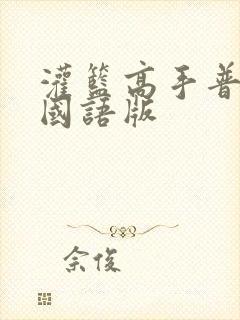 灌籃高手普
國語版
佘俊